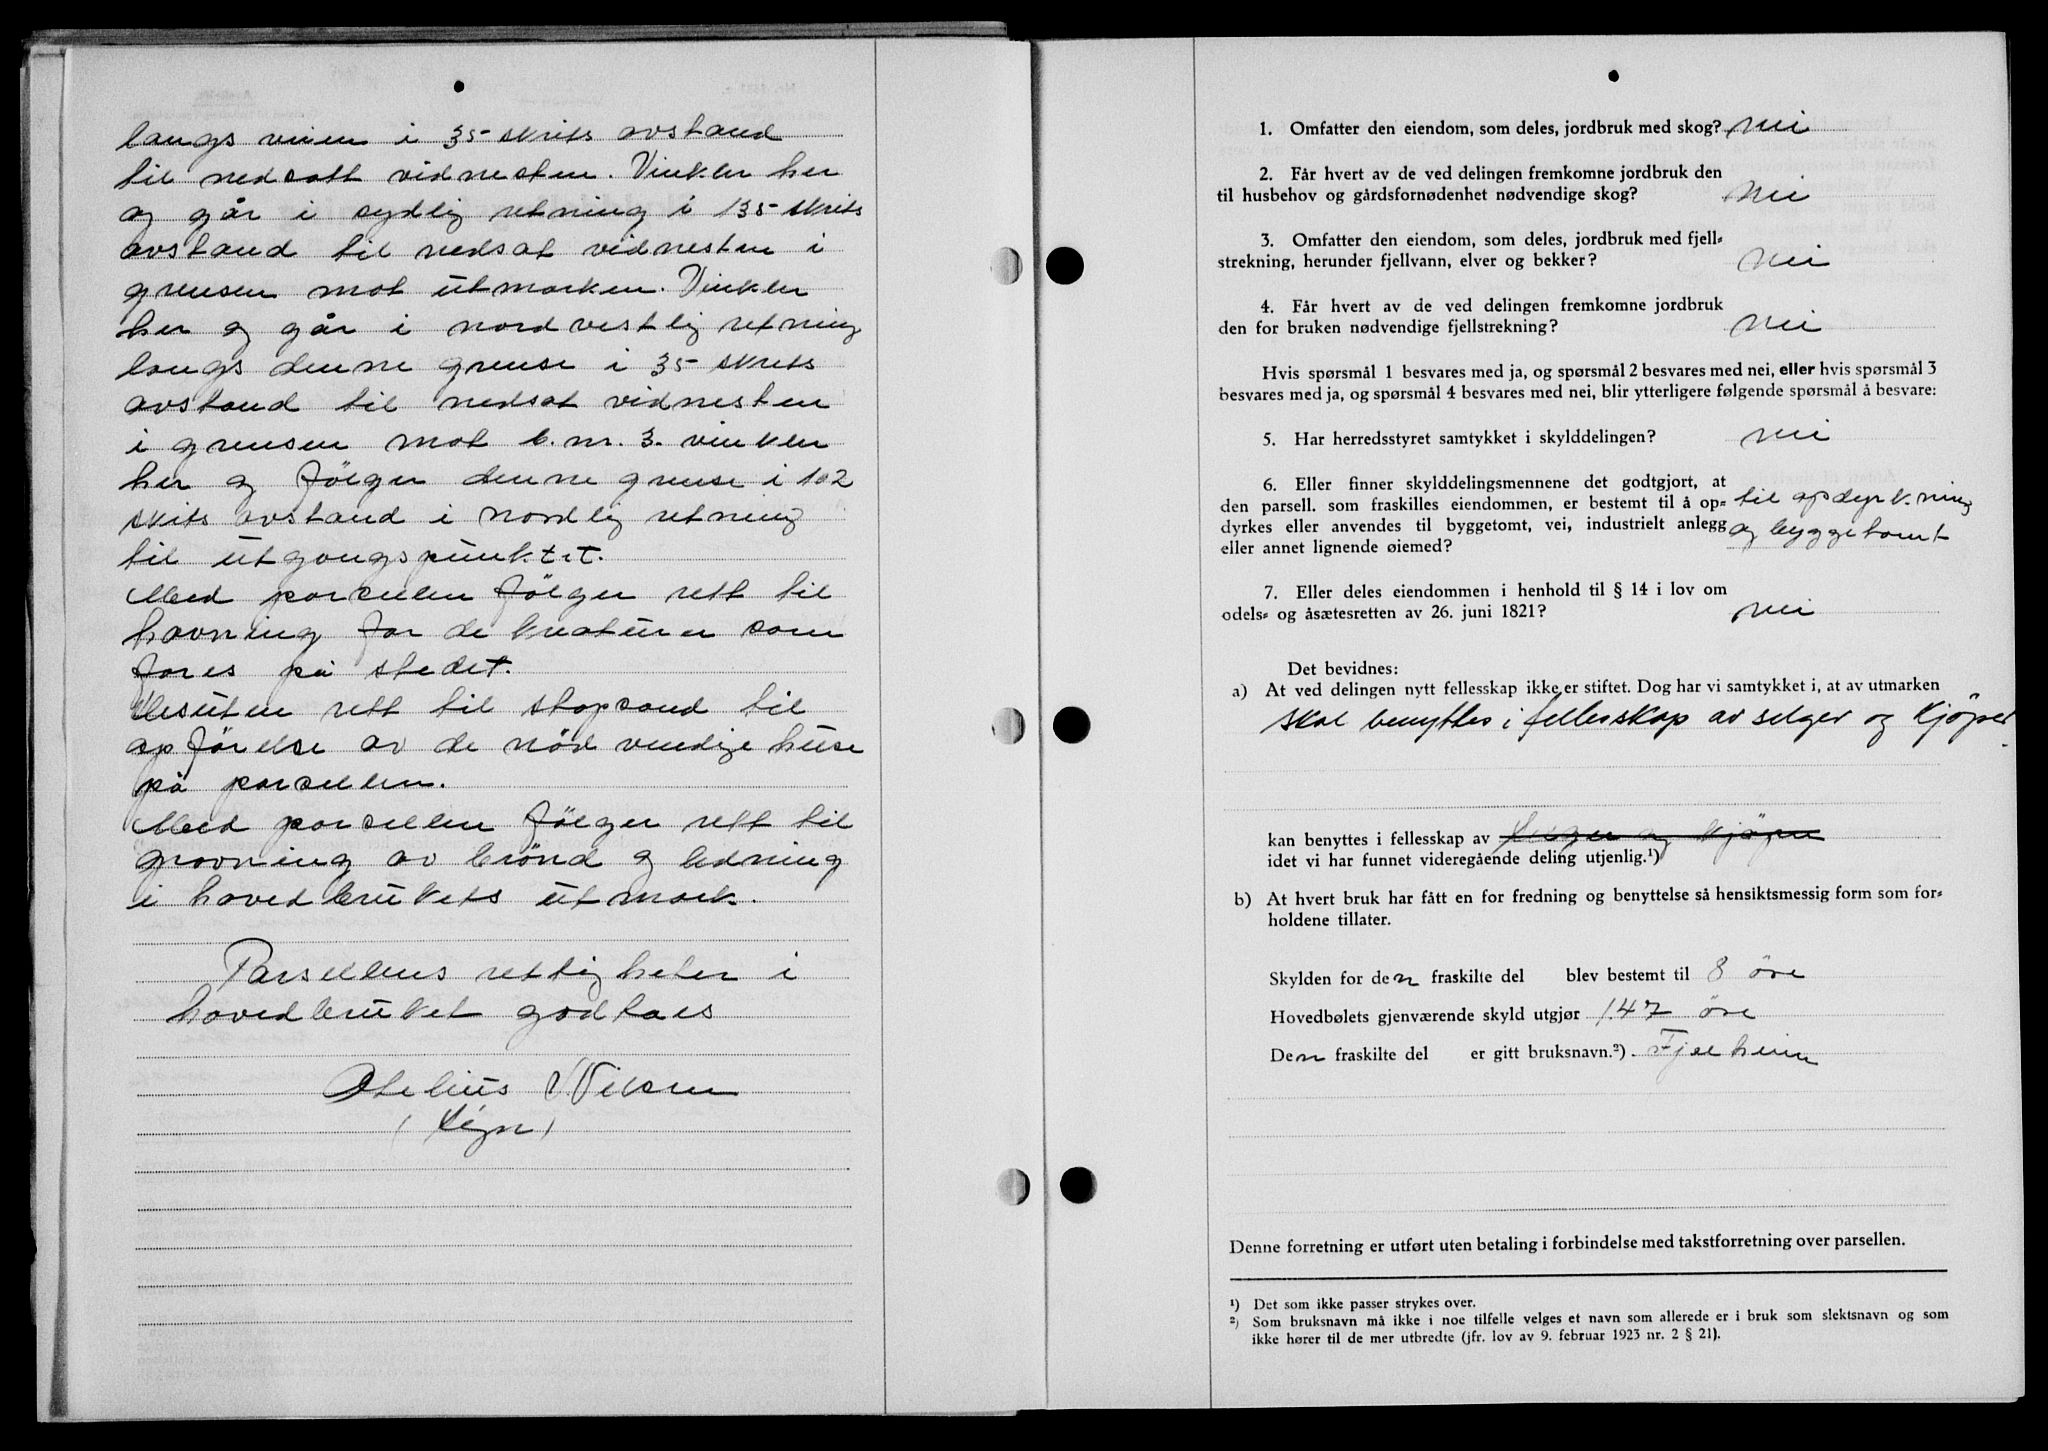 langs veien i 35 skrits avstand
til nedsatt vidnesten. Vinkler her
og går i sydlig retning i 135 skrits
avstand til nedsat vidnesten i
grensen mot utmarken. Vinkler
her og går i nordvestlig retning
langs denne grense i 35 skrits
avstand til nedsat vidnesten
i grensen mot b.nr. 3. vinkler
her og følger denne grense i 102
skrits avstand i nordlig retning
til utgangspunktet.
Med parsellen følger rett til
havning for de kreaturer som
fores på stedet.
Desuten rett til støpsand til
opførelse av de nødvendige huse
på parsellen.
Med parsellen følger rett til
gravning av brønd og ledning
i hovedbrukets utmark.
Parsellens rettigheter i
hovedbruket godtaes
Nilsen
(sign)
1. Omfatter den eiendom, som deles, jordbruk med skog? nei
2. Får hvert av de ved delingen fremkomne jordbruk den
til husbehov og gårdsfornødenhet nødvendige skog? nei
3. Omfatter den eiendom, som deles, jordbruk med fjell-
strekning, herunder fjellvann, elver og bekker? nei
4. Får hvert av de ved delingen fremkomne jordbruk
den for bruken nødvendige fjellstrekning? nei
Hvis spørsmål 1 besvares med ja, og spørsmål 2 besvares med nei, eller hvis spørsmål 3
besvares med ja, og spørsmål 4 besvares med nei, blir ytterligere følgende spørsmål å besvare:
5. Har herredsstyret samtykket i skylddelingen? nei
6. Eller finner skylddelingsmennene det godtgjort, at
den parsell. som fraskilles eiendommen, er bestemt til å op- til opdyrkning
dyrkes eller anvendes til byggetomt, vei, industrielt anlegg og byggetomt
eller annet lignende øiemed?
7. Eller deles eiendommen i henhold til § 14 i lov om
odels- og åsætesretten av 26. juni 1821? nei
Det bevidnes:
a) At ved delingen nytt fellesskap ikke er stiftet. Dog har vi samtykket i, at av utmarken
skal benyttes i fellesskap av selger og kjøper.
kan benyttes i fellesskap av selger og kjøper
idet vi har funnet videregående deling utjenlig.¹)
b) At hvert bruk har fått en for fredning og benyttelse så hensiktsmessig form som for-
holdene tillater.
Skylden for den fraskilte del blev bestemt til 8 øre
Hovedbølets gjenværende skyld utgjør 1.47 øre
Den fraskilte del er gitt bruksnavn.²) Fjelheim
Denne forretning er utført uten betaling i forbindelse med takstforretning over parsellen.
¹) Det som ikke passer strykes over.
²) Som bruksnavn må ikke i noe tilfelle velges et navn som allerede er i bruk som slektsnavn og som
ikke hører til de mer utbredte (jfr. lov av 9. februar 1923 nr. 2 § 21).